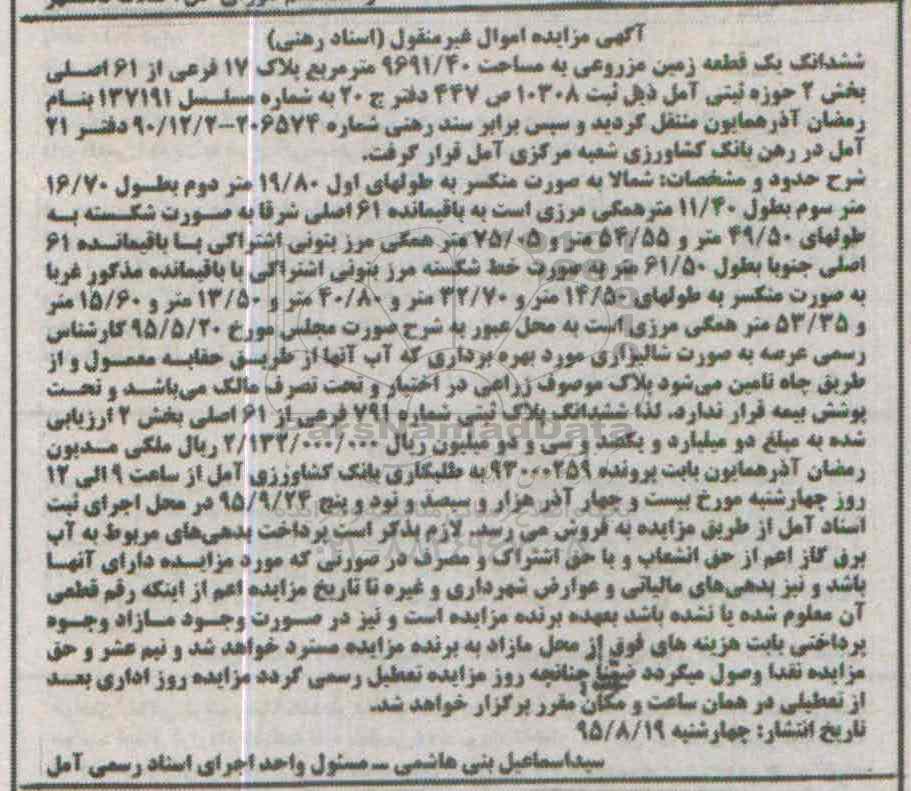 آگهی مزایده اموال غیرمنقول (اسناد رهنی)
ششدانگ یک قطعه زمین مزروعی به مساحت ۹۶۹۱/۴۰ مترمربع پلاک ۱۷ فرعی از ۶۱ اصلی
بخش ۲ حوزه ثبتی آمل ذیل ثبت ۱۰۳۰۸ ص ۴۴۷ دفتر ج ۲۰ به شماره مسلسل ۱۳۷۱۹۱ بنام
رمضان آذرهمایون منتقل گردید و سپس برابر سند رهنی شماره ۲۰۶۵۷۴–۹۰/۱۲/۲ دفتر ۲۱
آمل در رهن بانک کشاورزی شعبه مرکزی آمل قرار گرفت.
شرح حدود و مشخصات: شمالا به صورت منکسر به طولهای اول ۱۹/۸۰ متر دوم بطول ۱۶/۷۰
متر سوم بطول ۱۱/۴۰ مترهمگی مرزی است به باقیمانده ۶۱ اصلی شرقا به صورت شکسته به
طولهای ۴۹/۵۰ متر و ۵۴/۵۵ متر و ۷۵/۰۵ متر همگی مرز بتونی اشتراکی با باقیمانده ۶۱
اصلی جنوبا بطول ۶۱/۵۰ متر به صورت خط شکسته مرز بتونی اشتراکی با باقیمانده مذکور غربا
به صورت منکسر به طولهای ۱۴/۵۰ متر و ۳۲/۷۰ متر و ۴۰/۸۰ متر و ۱۳/۵۰ متر و ۱۵/۶۰ متر
و ۵۳/۳۵ متر همگی مرزی است به محل عبور به شرح صورت مجلس مورخ ۹۵/۵/۲۰ کارشناس
رسمی عرصه به صورت شالیزاری مورد بهره برداری که آب آنها از طریق حقابه معمول و از
طریق چاه تامین می‌شود پلاک موصوف زراعی در اختیار و تحت تصرف مالک می‌باشد و تحت
پوشش بیمه قرار ندارد. لذا ششدانگ پلاک ثبتی شماره ۷۹۱ فرعی از ۶۱ اصلی بخش ۲ ارزیابی
شده به مبلغ دو میلیارد و یکصد و سی و دو میلیون ریال ۲/۱۳۲/۰۰۰/۰۰۰ ریال ملکی مدیون
رمضان آذرهمایون بابت پرونده ۹۳۰۰۰۲۵۹ به طلبکاری بانک کشاورزی آمل از ساعت ۹ الی ۱۲
روز چهارشنبه مورخ بیست و چهار آذر هزار و سیصد و نود و پنج ۹۵/۹/۲۴ در محل اجرای ثبت
اسناد آمل از طریق مزایده به فروش می رسد. لازم بذکر است پرداخت بدهی‌های مربوط به آب
برق گاز اعم از حق انشعاب و یا حق اشتراک و مصرف در صورتی که مورد مزایده دارای آنها
باشد و نیز بدهی‌های مالیاتی و عوارض شهرداری و غیره تا تاریخ مزایده اعم از اینکه رقم قطعی
آن معلوم شده یا نشده باشد بعهده برنده مزایده است و نیز در صورت وجود مازاد وجوه
پرداختی بابت هزینه های فوق از محل مازاد به برنده مزایده مسترد خواهد شد و نیم عشر و حق
مزایده نقدا وصول میگردد ضمنا چنانچه روز مزایده تعطیل رسمی گردد مزایده روز اداری بعد
از تعطیلی در همان ساعت و مکان مقرر برگزار خواهد شد.
تاریخ انتشار: چهارشنبه ۹۵/۸/۱۹
سیداسماعیل بنی هاشمی – مسئول واحد اجرای اسناد رسمی آمل
ParsNamadData